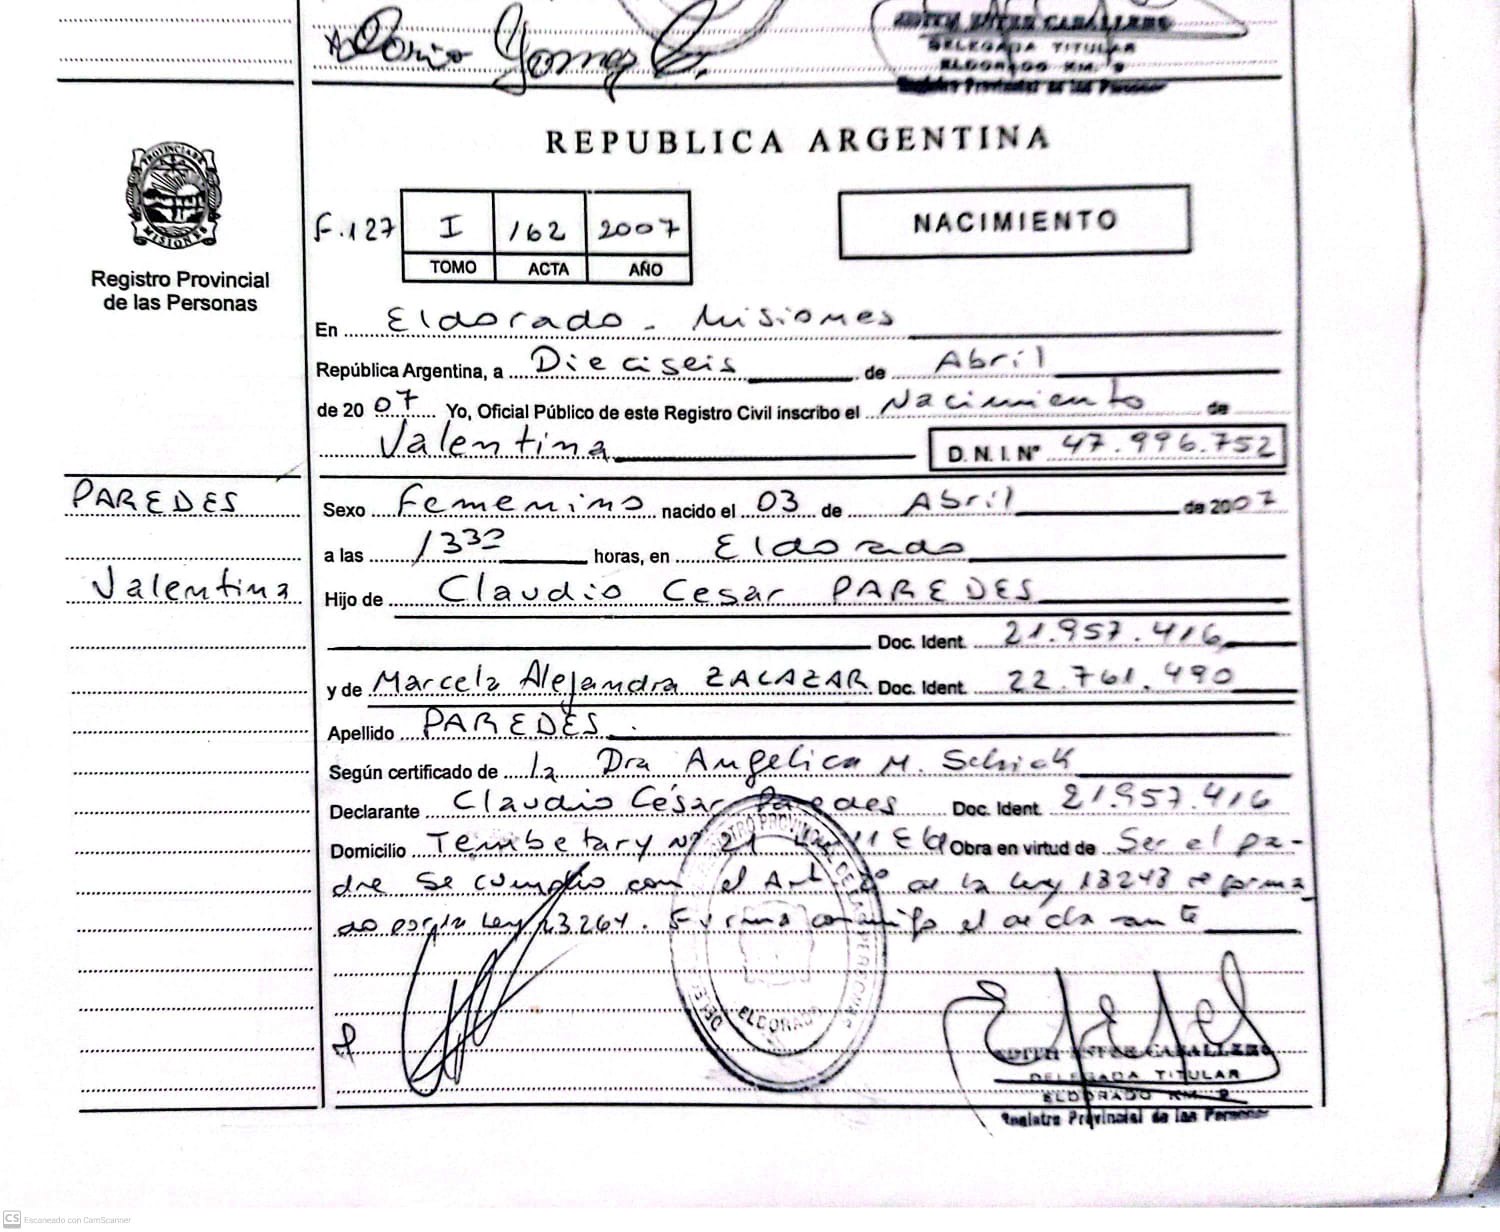 Gomez
EDITH ESTER CABALLERO
DELEGADA TITULAR
ELDORADO KM. 9
Registro Provincial de las Personas
REPUBLICA ARGENTINA
PROVINCIA DE MISIONES
Registro Provincial
de las Personas
F.127 I 162 2007
TOMO ACTA AÑO
NACIMIENTO
En Eldorado - Misiones
República Argentina, a Dieciseis de Abril
de 2007 Yo, Oficial Público de este Registro Civil inscribo el Nacimiento de
Valentina D. N. I. Nº 47.996.752
PAREDES
Valentina
Sexo Femenino nacido el 03 de Abril de 2007
a las 1330 horas, en Eldorado
Hijo de Claudio Cesar PAREDES
Doc. Ident. 21.957.416
y de Marcela Alejandra ZALAZAR Doc. Ident. 22.761.490
Apellido PAREDES
Según certificado de la Dra Angelica M. Schick
Declarante Claudio César Paredes Doc. Ident. 21.957.416
Domicilio Tembetary Nº 21 11 Eld Obra en virtud de Ser el pa-
dre Se cumplio con el Art. 2º de la Ley 13248 reforma
do por la Ley 23.264. Firma conmigo el declarante
ELDORADO
EDITH ESTER CABALLERO
DELEGADA TITULAR
ELDORADO KM. 9
Registro Provincial de las Personas
CS Escaneado con CamScanner